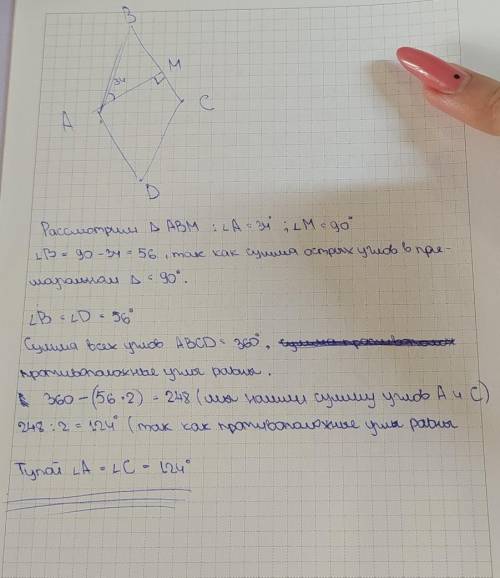 B
34
M
A
C
D
Рассмотрим Δ ABM : ∠A = 34° ; ∠M = 90°
∠B = 90 - 34 = 56, так как сумма острых углов в пря-
моугольном Δ = 90°.
∠B = ∠D = 56°
Сумма всех углов ABCD = 360°,
противоположные углы равны.
360 - (56 · 2) = 248 (мы нашли сумму углов A и C)
248 : 2 = 124° (так как противоположные углы равны
Тупой ∠A = ∠C = 124°